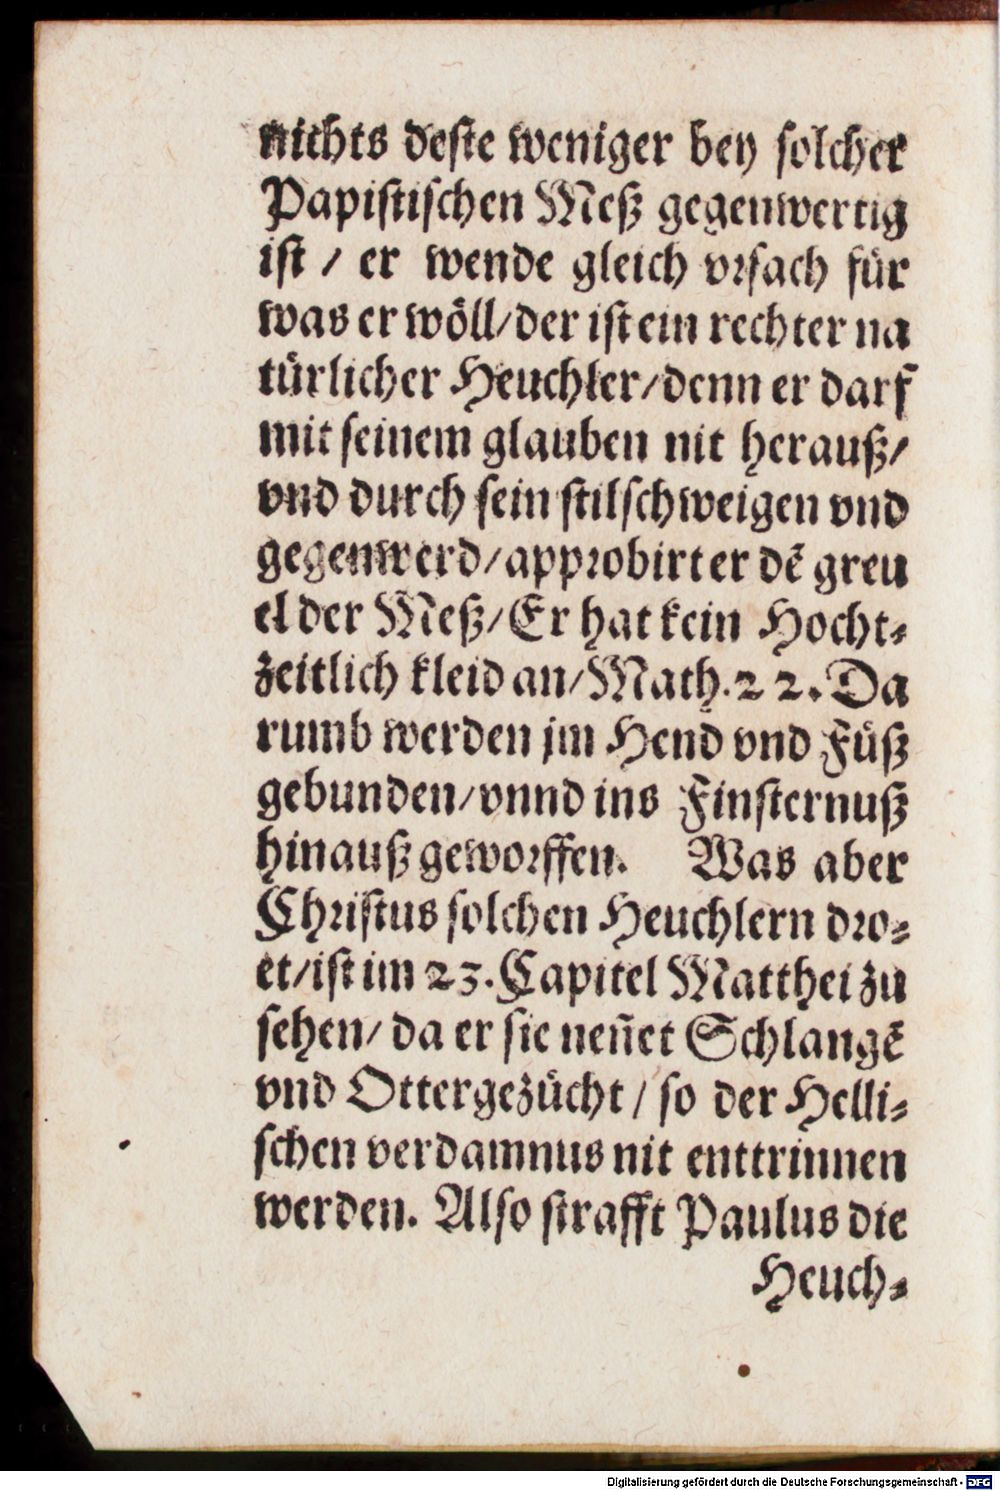 nichts deste weniger bey solcher
Papistischen Meß gegenwertig
ist / er wende gleich vrsach für
was er wöll/der ist ein rechter na
türlicher Heuchler/denn er darf
mit seinem glauben nit herauß/
vnd durch sein stilschweigen vnd
gegenwerd/approbirt er dẽ greu
el der Meß/Er hat kein Hocht-
zeitlich kleid an/Math.22.Da
rumb werden jm Hend vnd Füß
gebunden/vnnd ins Finsternuß
hinauß geworffen. Was aber
Christus solchen Heuchlern dro-
et/ist im 23.Capitel Matthei zu
sehen/ da er sie neñet Schlangẽ
vnd Ottergezücht / so der Helli-
schen verdamnus nit enttrinnen
werden. Also strafft Paulus die
Heuch-
Digitalisierung gefördert durch die Deutsche Forschungsgemeinschaft - DFG